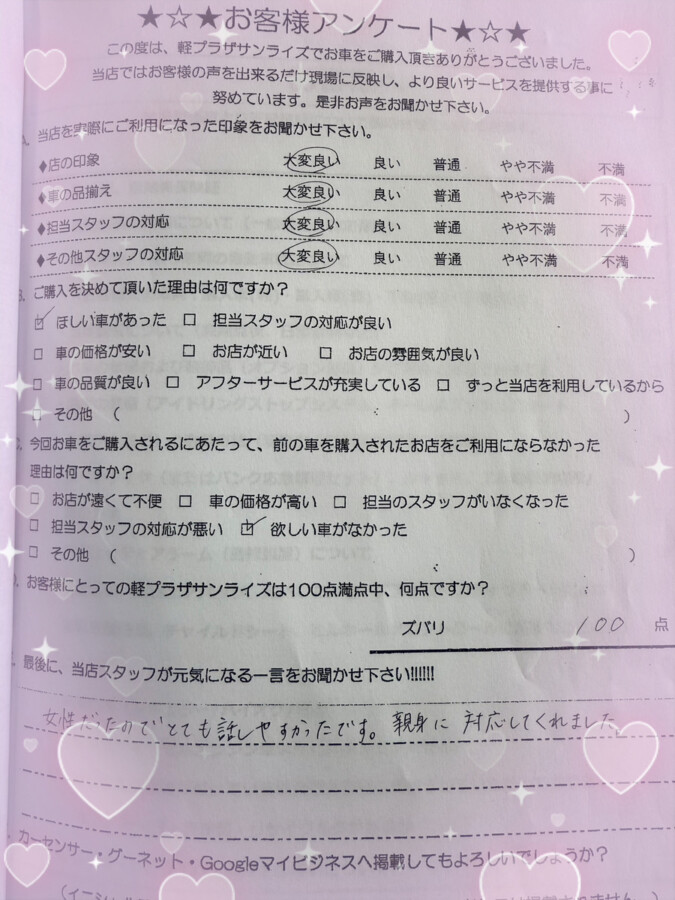 ★☆★お客様アンケート★☆★
この度は、軽プラザサンライズでお車をご購入頂きありがとうございました。
当店ではお客様の声を出来るだけ現場に反映し、より良いサービスを提供する事に
努めています。是非お声をお聞かせ下さい。
当店を実際にご利用になった印象をお聞かせ下さい。
◆店の印象 大変良い 良い 普通 やや不満 不満
◆車の品揃え 大変良い 良い 普通 やや不満 不満
◆担当スタッフの対応 大変良い 良い 普通 やや不満 不満
◆その他スタッフの対応 大変良い 良い 普通 やや不満 不満
ご購入を決めて頂いた理由は何ですか？
☑ ほしい車があった □ 担当スタッフの対応が良い
□ 車の価格が安い □ お店が近い □ お店の雰囲気が良い
□ 車の品質が良い □ アフターサービスが充実している □ ずっと当店を利用しているから
□ その他 （ ）
今回お車をご購入されるにあたって、前の車を購入されたお店をご利用にならなかった
理由は何ですか？
□ お店が遠くて不便 □ 車の価格が高い □ 担当のスタッフがいなくなった
□ 担当スタッフの対応が悪い ☑ 欲しい車がなかった
□ その他 （ ）
お客様にとっての軽プラザサンライズは100点満点中、何点ですか？
ズバリ 100 点
最後に、当店スタッフが元気になる一言をお聞かせ下さい!!!!!!
女性だったのでとても話しやすかったです。親身に対応してくれました
カーセンサー・グーネット・Googleマイビジネスへ掲載してもよろしいでしょうか？